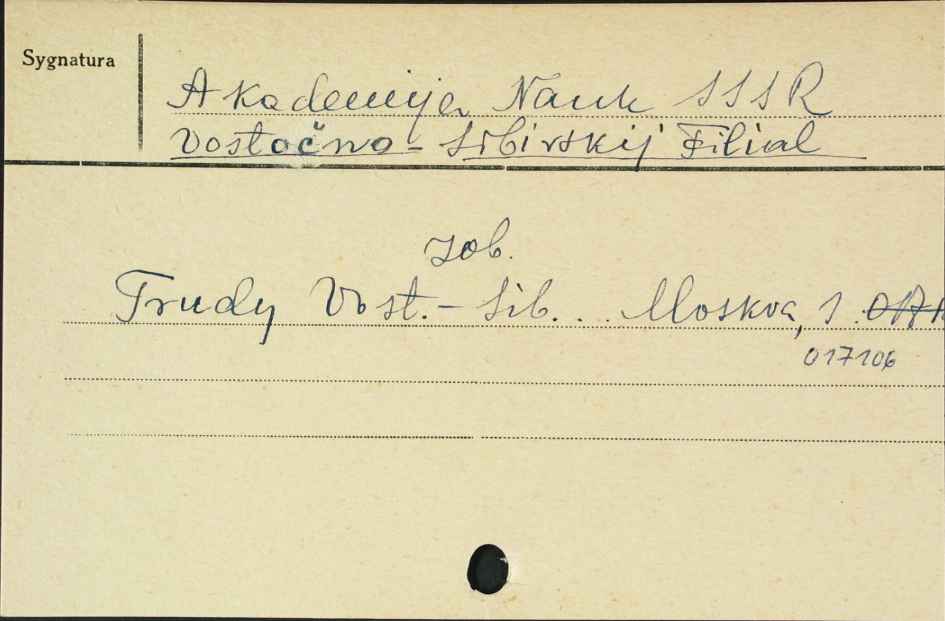 Sygnatura
Akademija Nauk SSSR
Vostočno-Sibirskij Filial
zob.
Trudy Vost.-Sib... Moskva, s.
017106